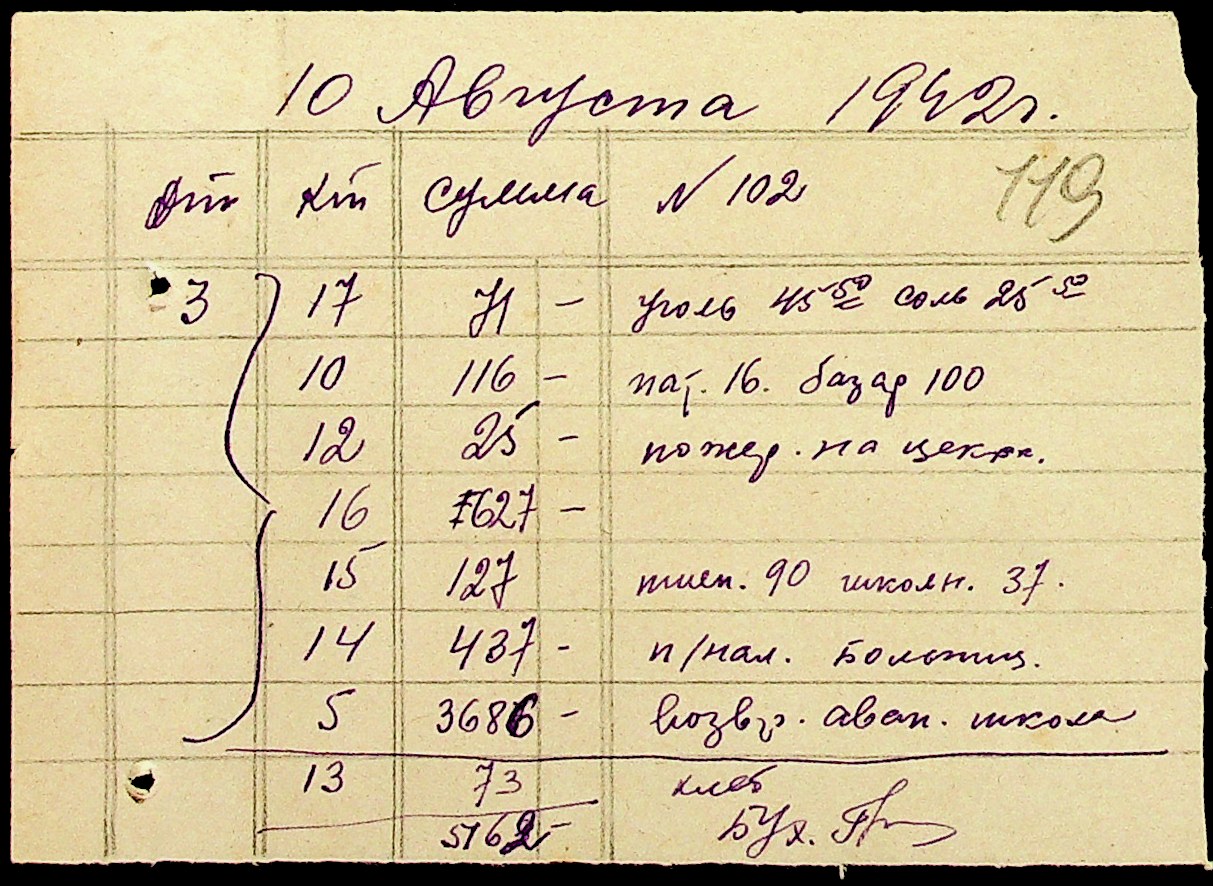 10 Августа 1942г.
Дт Кт сумма N 102 119
3 17 71 – уголь 45 50 соль 25 50
10 116 – пат. 16. базар 100
12 25 – пожер. на церкв.
16 627 –
15 127 пшен. 90 школн. 37.
14 437 – п/нал. больниц.
5 3686 – возвр. аван. школа
13 73 хлеб
5162 – Бух.